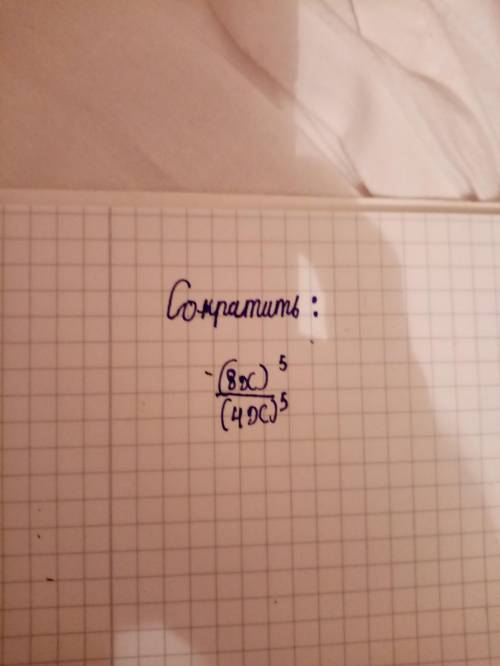 Сократить:
(8x)⁵
(4x)⁵